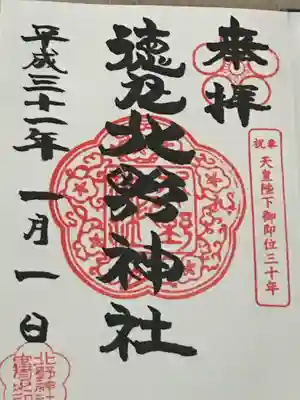 奉拝
奉祝 天皇陛下御即位三十年
徳丸北野神社
平成三十一年 一月一日